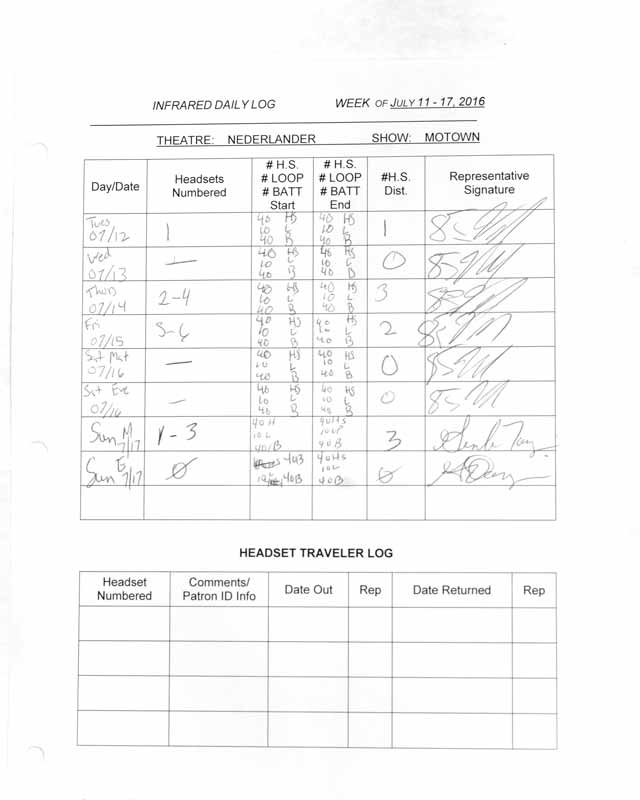 INFRARED DAILY LOG WEEK OF JULY 11 - 17, 2016
THEATRE: NEDERLANDER SHOW: MOTOWN
Day/Date
Headsets
Numbered
# H.S.
# LOOP
# BATT
Start
# H.S.
# LOOP
# BATT
End
#H.S.
Dist.
Representative
Signature
Tues
07/12
1
40 HS
10 L
40 B
40 HS
10 L
40 B
1
Wed
07/13
—
40 HS
10 L
40 B
40 HS
10 L
40 B
0
Thurs
07/14
2-4
40 HS
10 L
40 B
40 HS
10 L
40 B
3
Fri
07/15
5-6
40 HS
10 L
40 B
40 HS
10 L
40 B
2
Sat Mat
07/16
—
40 HS
10 L
40 B
40 HS
10 L
40 B
0
Sat Eve
07/16
—
40 HS
10 L
40 B
40 HS
10 L
40 B
0
Sun M
7/17
1-3
40 H
10 L
40 B
40 HS
10 LP
40 B
3
Sun E
7/17
Ø
10 L 40B
40HS
10 L
40B
Ø
HEADSET TRAVELER LOG
Headset
Numbered
Comments/
Patron ID Info
Date Out
Rep
Date Returned
Rep